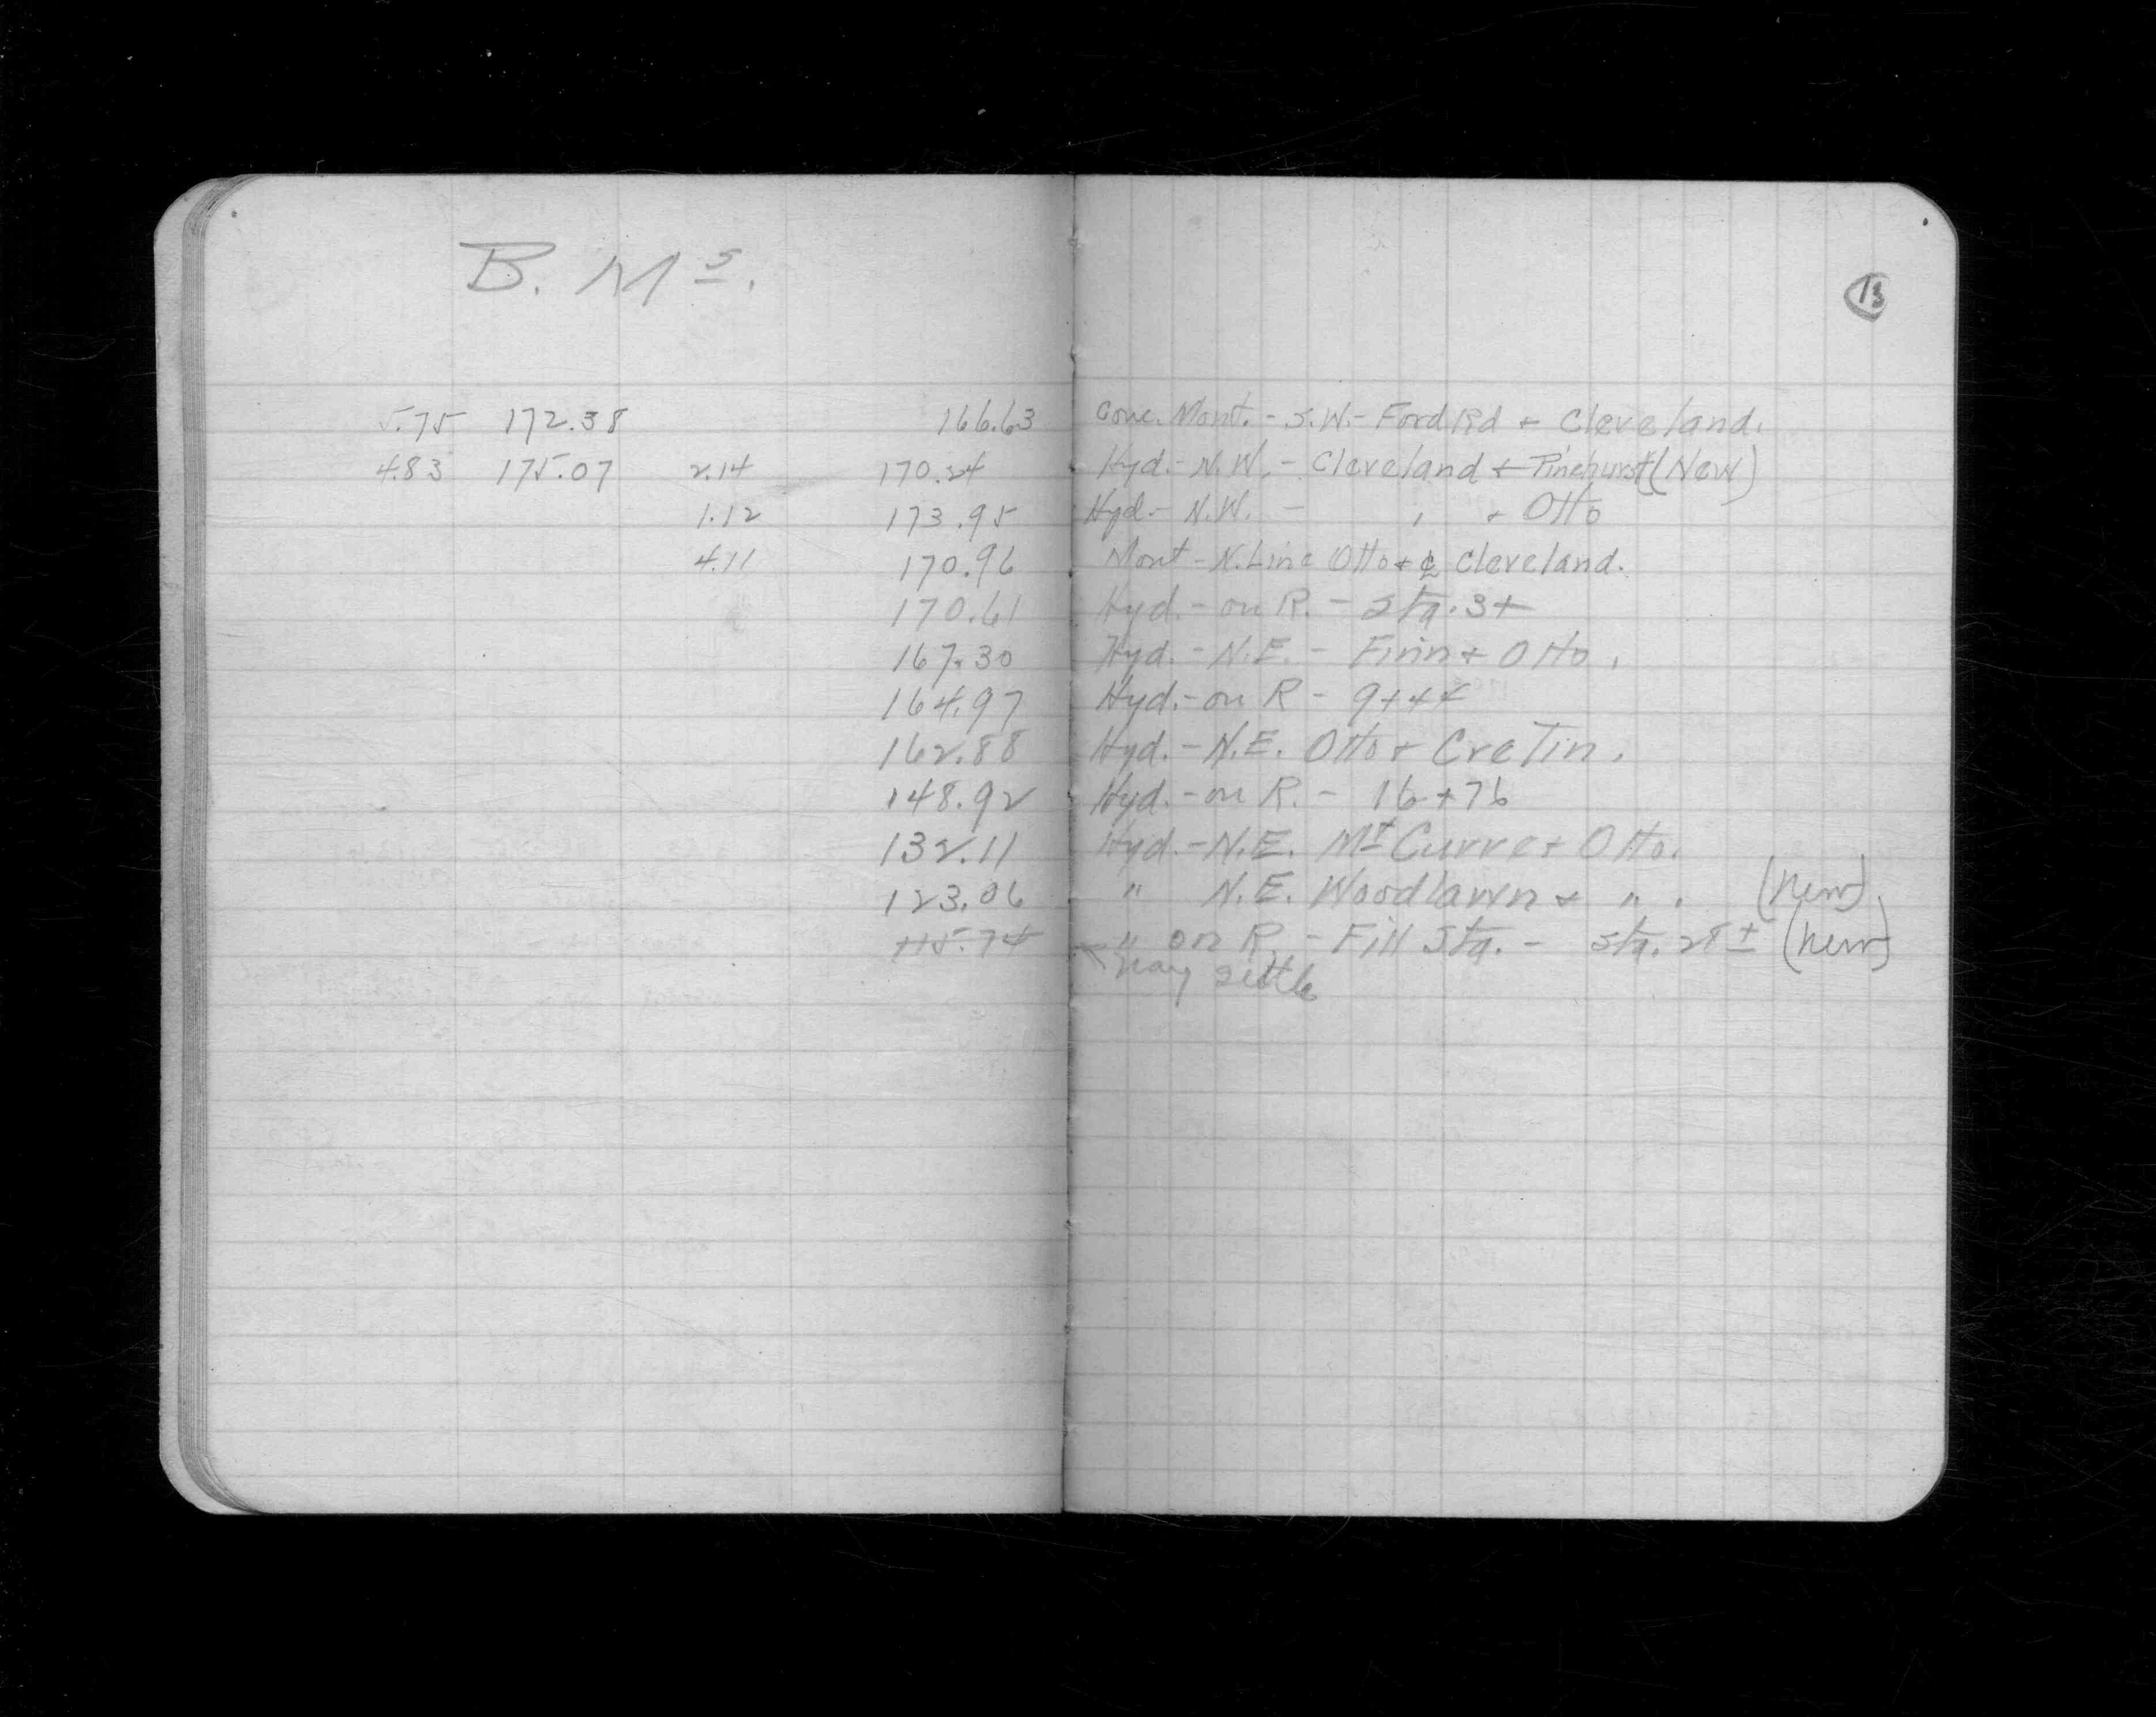 B. Ms.
13
5.75 172.38 166.63 Conc. Mont. - S.W. - Ford Rd + Cleveland.
4.83 175.07 2.14 170.24 Hyd. - N.W. - Cleveland + Pinehurst (New)
1.12 173.95 Hyd - N.W. - " + Otto
4.11 170.96 Mont - N. Line Otto + ℄ Cleveland.
170.61 Hyd. - on R. - Sta. 3+
167.30 Hyd. - N.E. - Finn + Otto.
164.97 Hyd. - on R - 9+44
162.88 Hyd. - N.E. Otto + Cretin.
148.92 Hyd. - on R. - 16+76
132.11 Hyd. - N.E. Mt Curve + Otto.
123.06 " N.E. Woodlawn + " . (New)
115.74 " on R. - Fill Sta. - Sta. 28 ± (New)
may settle